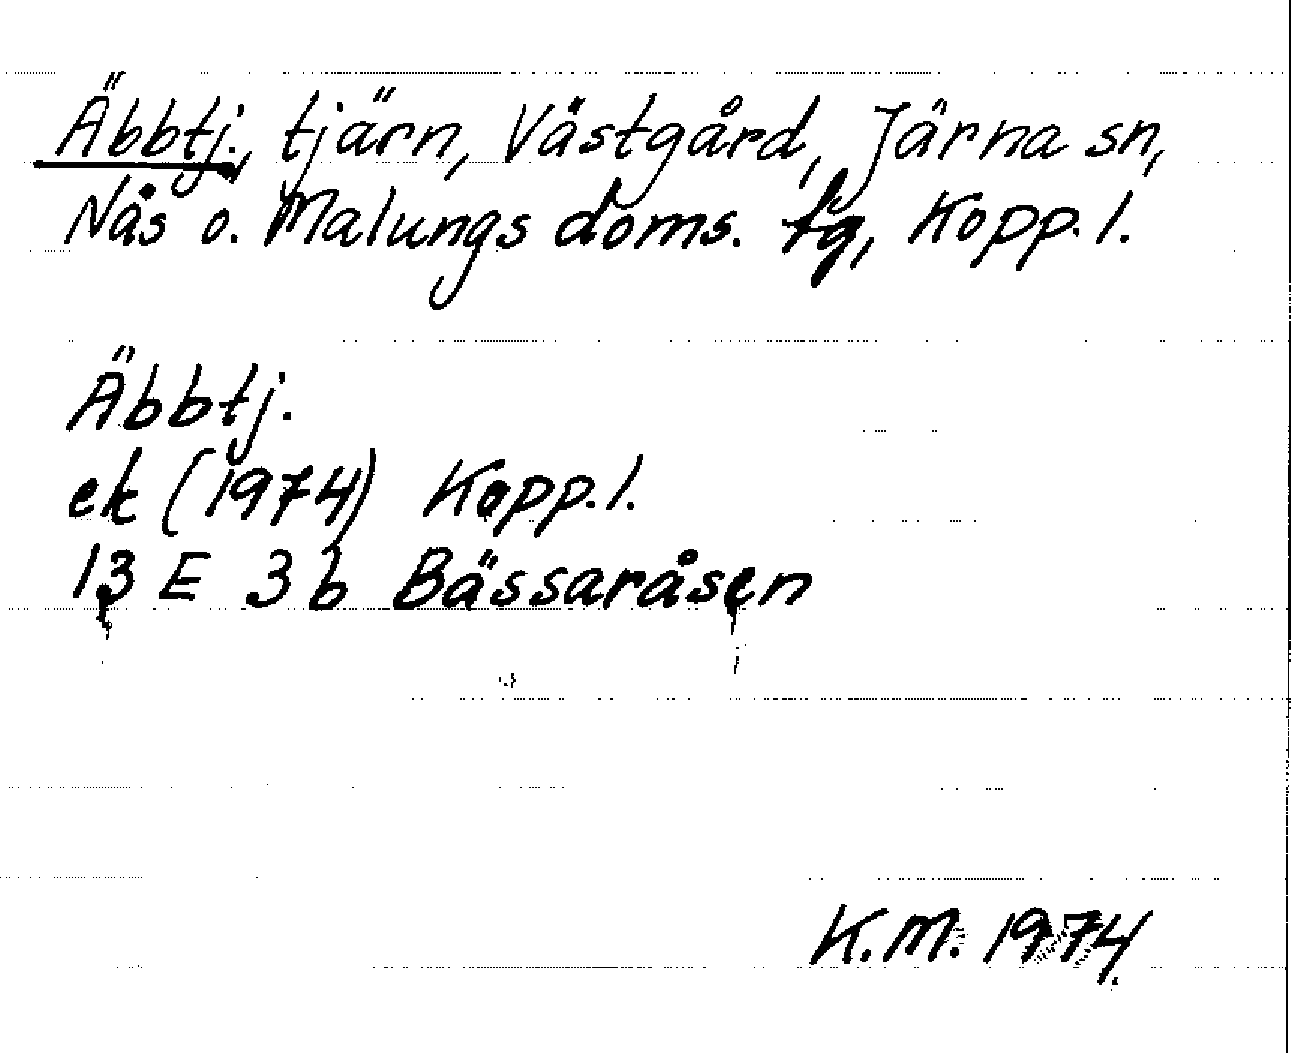 Äbbtj., tjärn, Västgård, Järna sn,
Nås o. Malungs doms. fg, Kopp. l.
Äbbtj.
ek (1974) Kopp. l.
13 E 3 b Bässaråsen
K.M. 1974